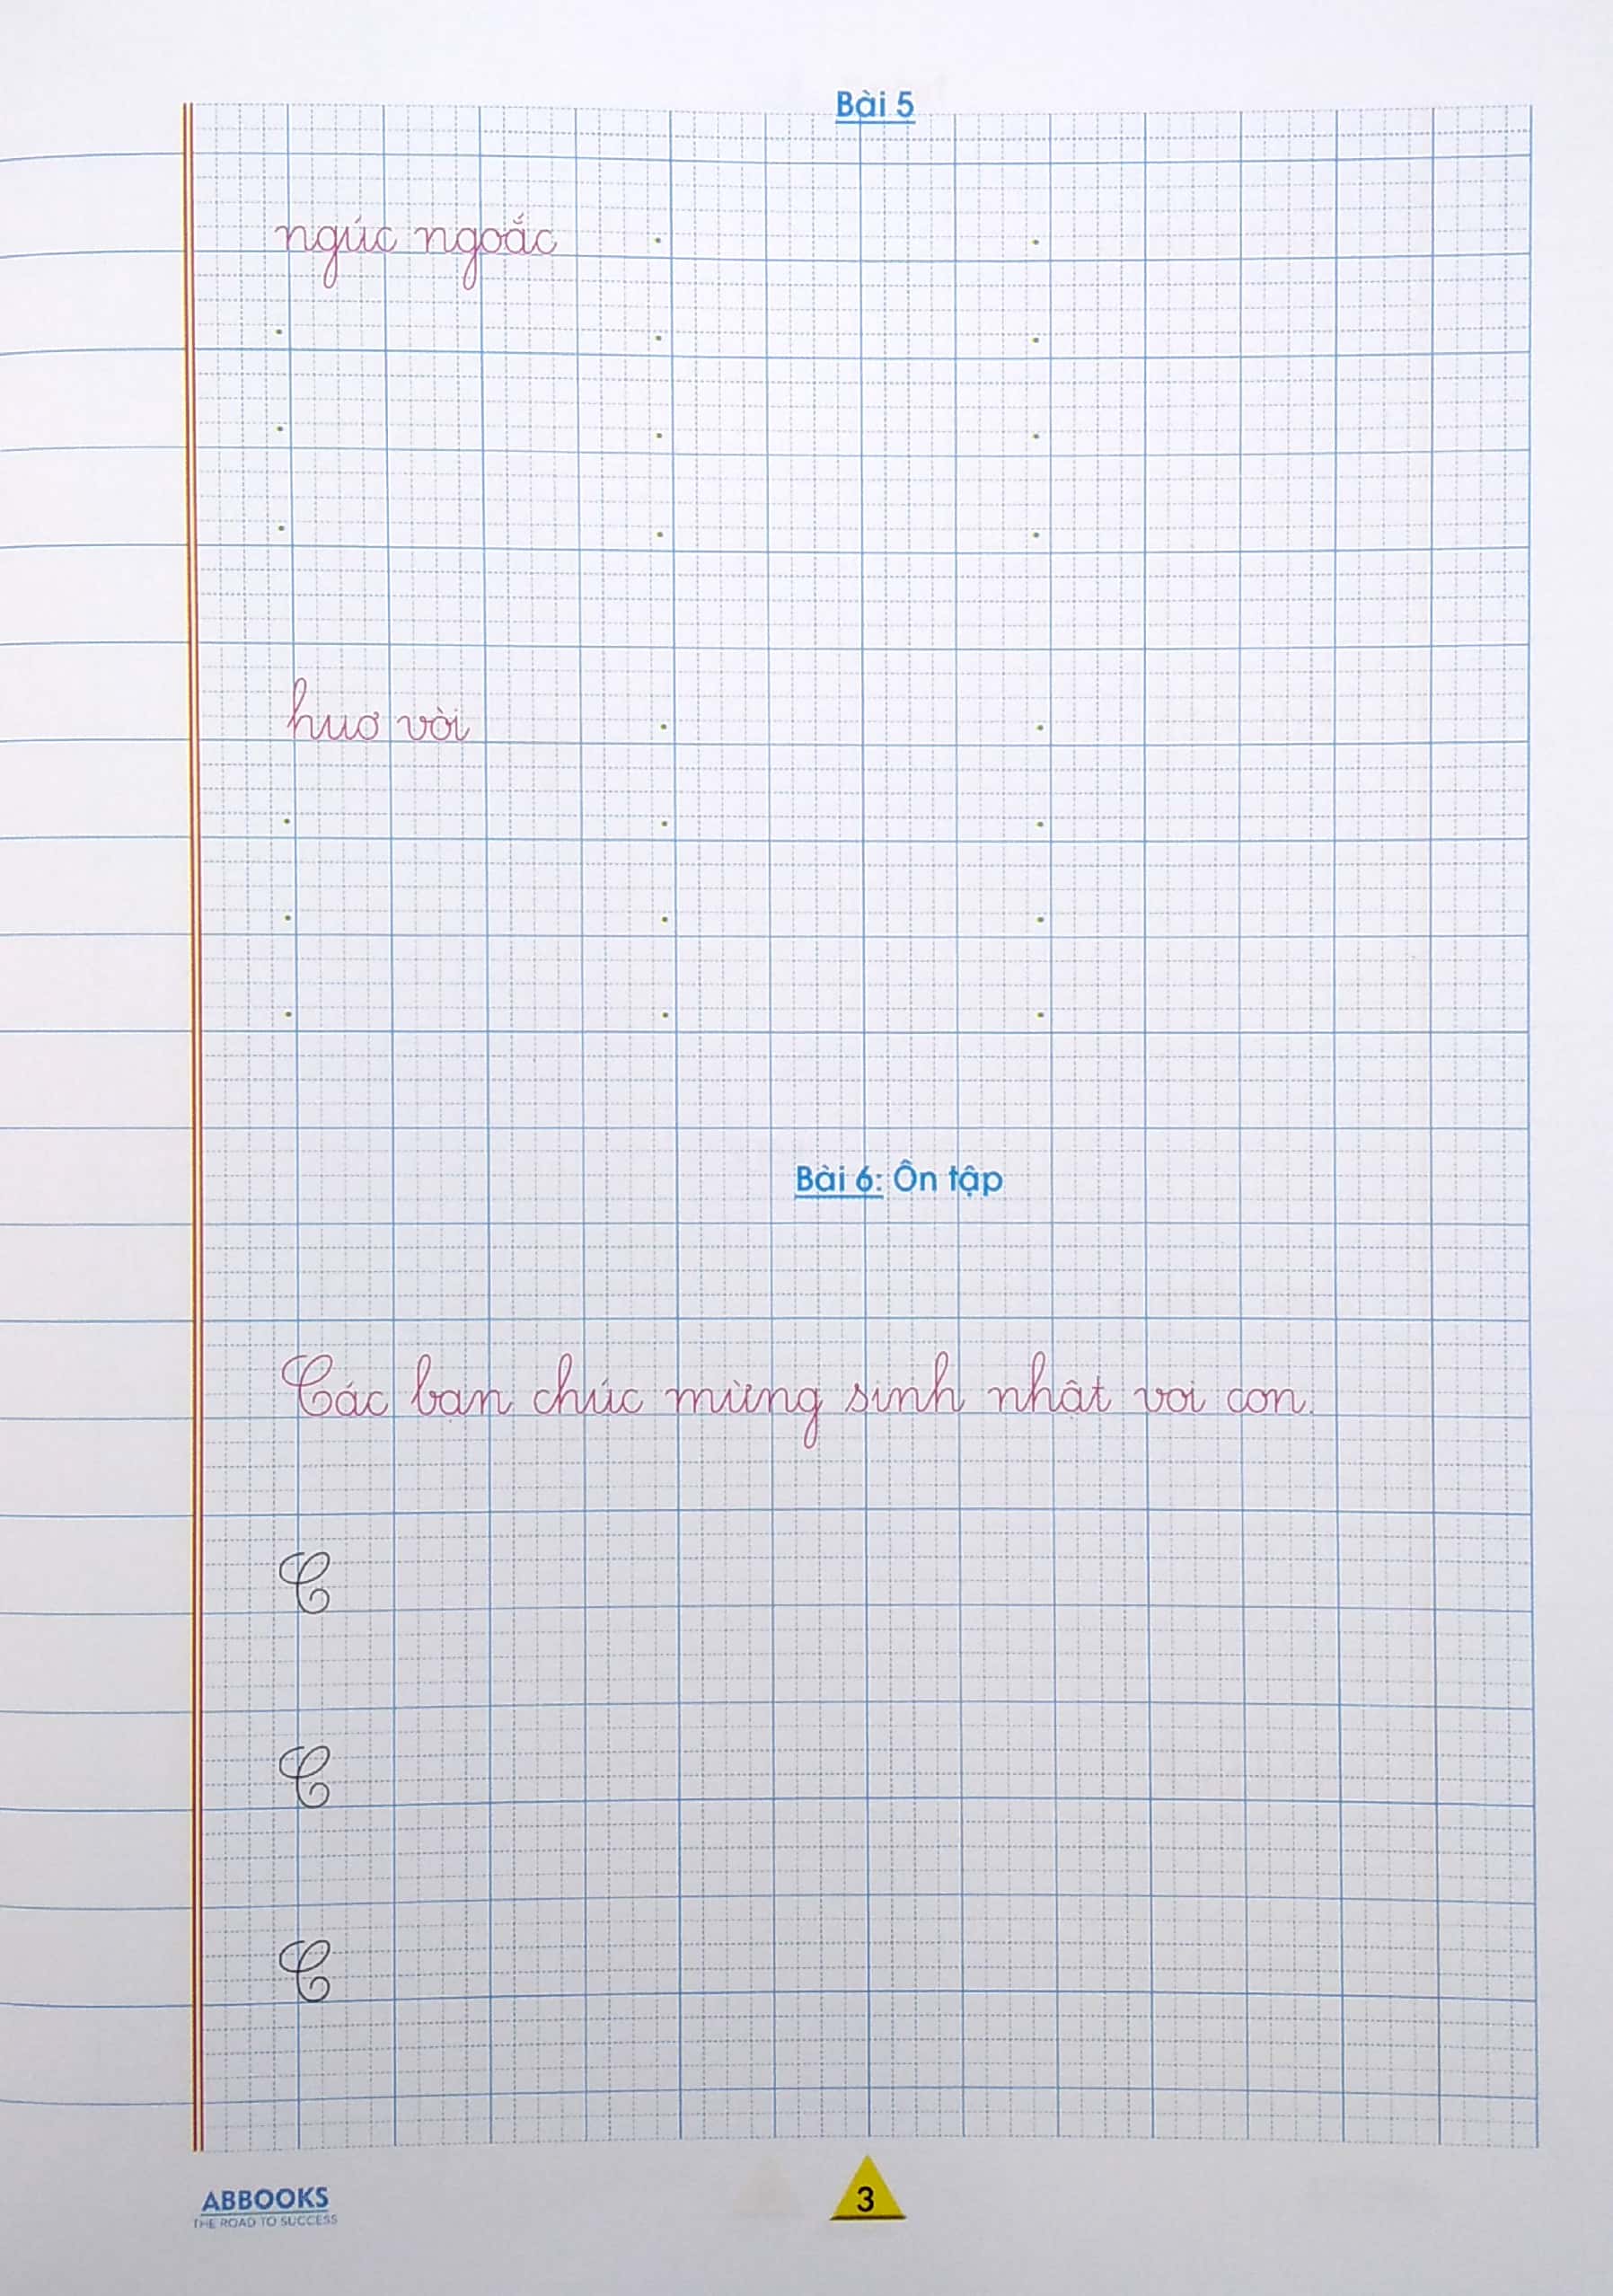 Bài 5
ngúc ngoắc
huơ vòi
Bài 6: Ôn tập
Các bạn chúc mừng sinh nhật voi con.
C
C
C
ABBOOKS
THE ROAD TO SUCCESS
3